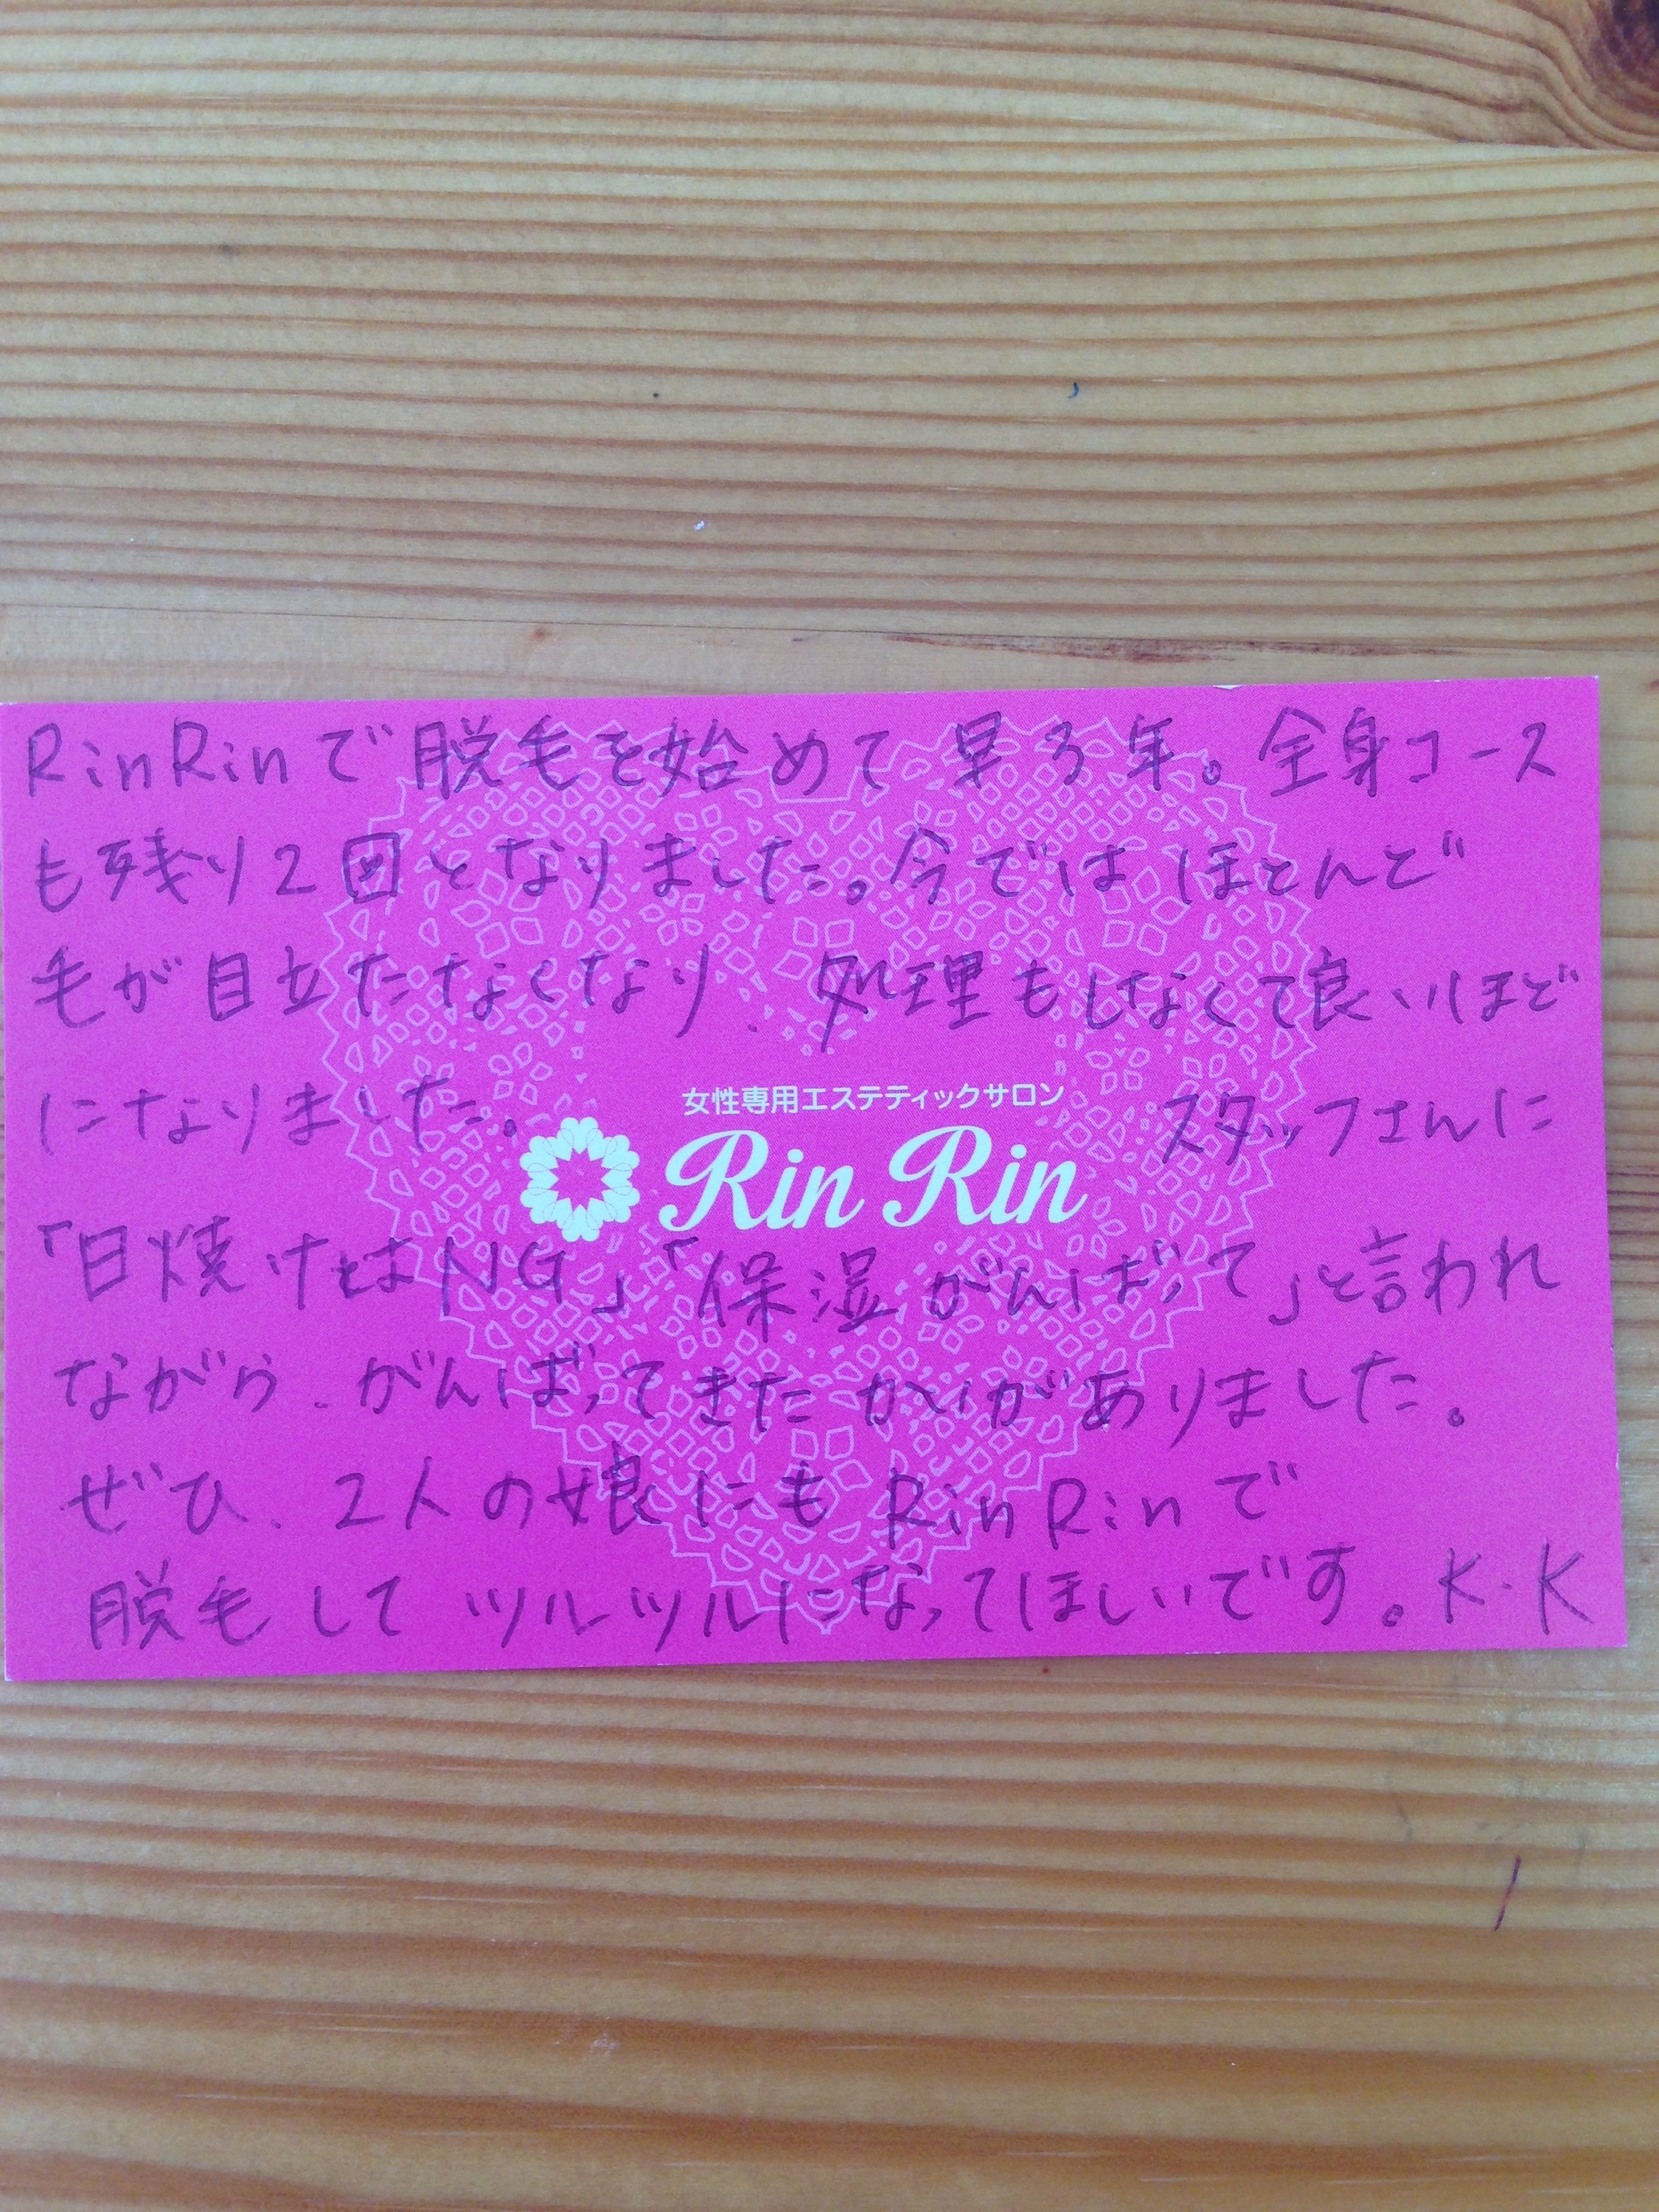 RinRinで脱毛を始めて早3年。全身コース
も残り2回となりました。今ではほとんど
毛が目立たなくなり、処理もしなくて良いほど
になりました。 スタッフさんに
女性専用エステティックサロン
Rin Rin
「日焼けはNG」「保湿がんばって」と言われ
ながら、がんばってきたかいがありました。
ぜひ、2人の娘にもRinRinで
脱毛してツルツルになってほしいです。K.K